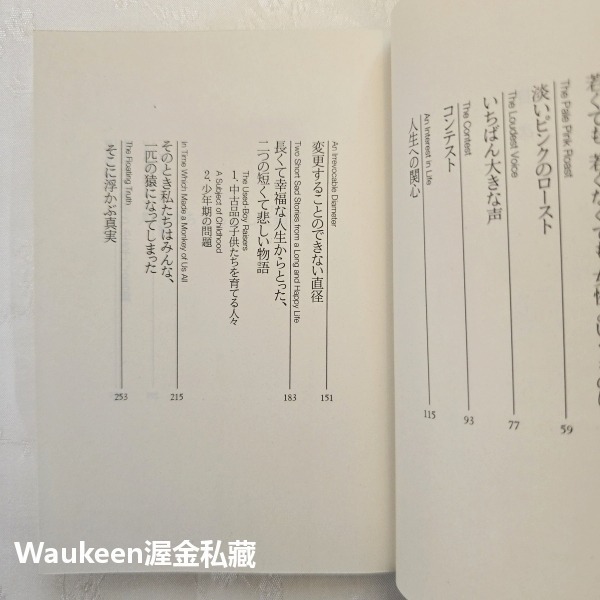 The Pale Pink Roast
淡いピンクのロースト
59
The Loudest Voice
いちばん大きな声
77
The Contest
コンテスト
93
An Interest in Life
人生への関心
115
An Irrevocable Diameter
変更することのできない直径
151
Two Short Sad Stories from a Long and Happy Life
長くて幸福な人生からとった、
二つの短くて悲しい物語
183
The Used-Boy Raisers
1、中古品の子供たちを育てる人々
A Subject of Childhood
2、少年期の問題
In Time Which Made a Monkey of Us All
そのとき私たちはみんな、
一匹の猿になってしまった
215
The Floating Truth
そこに浮かぶ真実
253
Waukeen渥金私藏